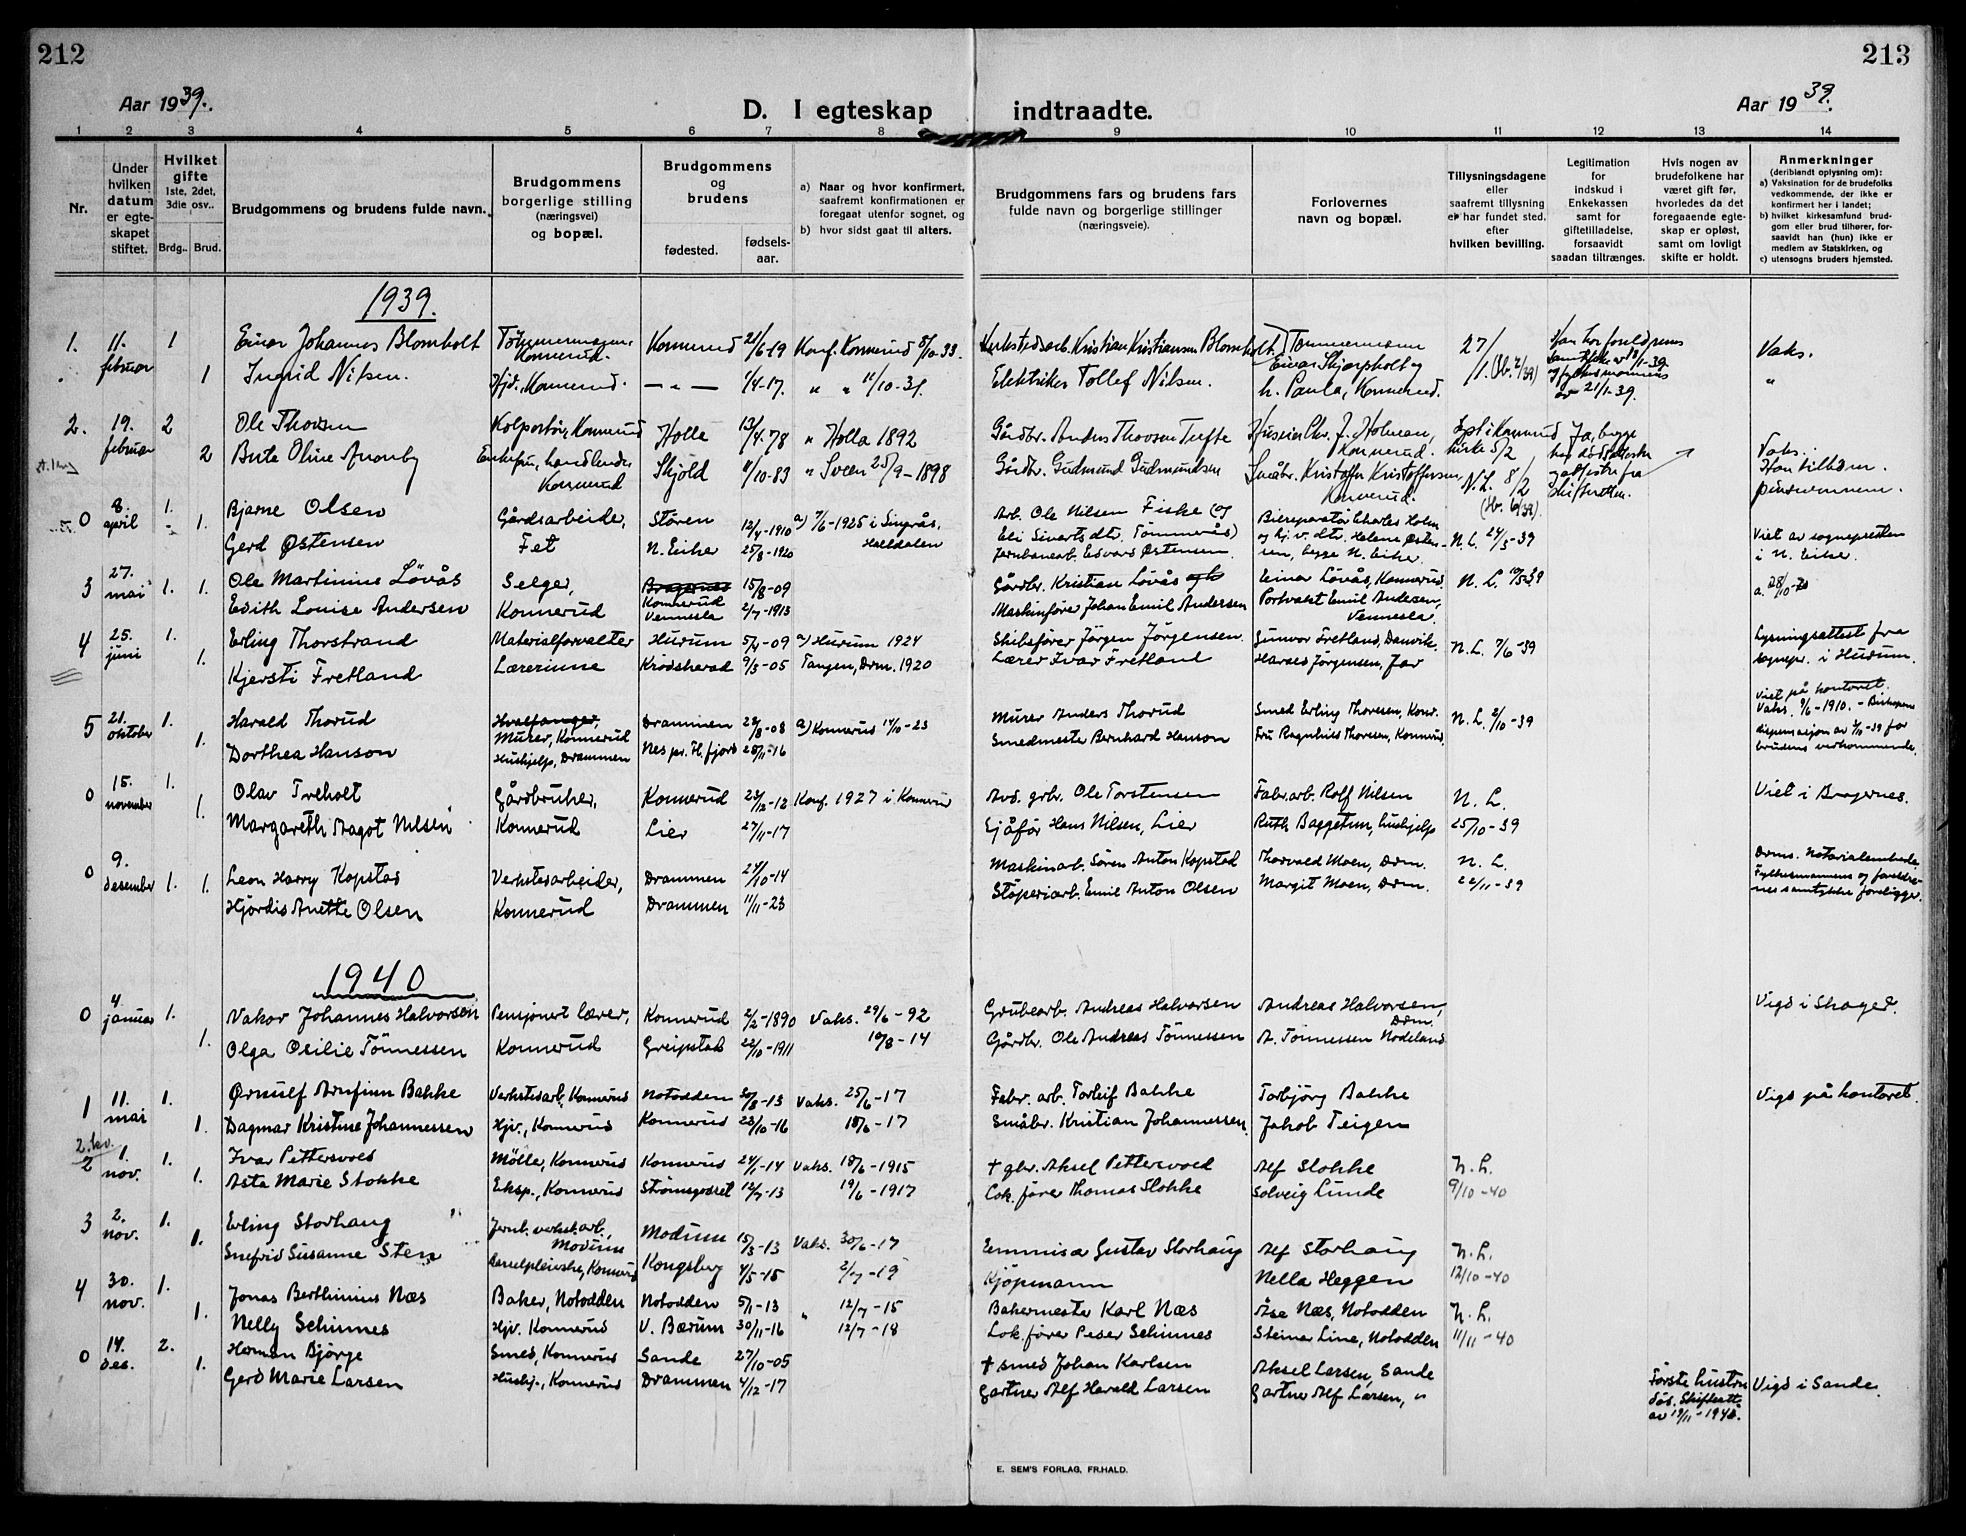 212
213
Aar 1939.
D. I egteskap indtraadte.
Aar 1939.
1 2 3 4 5 6 7 8 9 10 11 12 13 14
Nr.
Under hvilken datum er egteskapet stiftet.
Hvilket gifte 1ste, 2det, 3die osv..
Brdg.. Brud.
Brudgommens og brudens fulde navn.
Brudgommens borgerlige stilling (næringsvei) og bopæl.
Brudgommens og brudens
fødested.
fødsels-aar.
a) Naar og hvor konfirmert, saafremt konfirmationen er foregaat utenfor sognet, og
b) hvor sidst gaat til alters.
Brudgommens fars og brudens fars fulde navn og borgerlige stillinger (næringsveie).
Forlovernes navn og bopæl.
Tillysningsdagene eller saafremt tillysning ei har fundet sted, efter hvilken bevilling.
Legitimation for indskud i Enkekassen samt for giftetilladelse, forsaavidt saadan tiltrænges.
Hvis nogen av brudefolkene har været gift før, hvorledes da det foregaaende egteskap er opløst, samt om lovligt skifte er holdt.
Anmerkninger (deriblandt oplysning om):
a) Vaksination for de brudefolks vedkommende, der ikke er konfirmert her i landet;
b) hvilket kirkesamfund brudgom eller brud tilhører, forsaavidt han (hun) ikke er medlem av Statskirken, og
c) utensogns bruders hjemsted.
1939.
1. 11. februar 1 Einar Johannes Blomholt Konnerud 21/6-19 Konf. Konnerud 8/10-33. Verkstedsarb. Kristian Kristiansen Blomholt. Tømmermann 27/1. Vaks.
1 Ingrid Nilsen. Hjv., Konnerud. — " — 1/4-17. " " 11/10-31. Elektriker Tollef Nilsen. Einar Skjærpholt og h. Paula, Konnerud. "
2. 19. februar 2 Ole Thovsen Kolportør, Konnerud Holla 13/4.78 " Holla 1892 Gårdbr. Anders Thovsen Tufte Holman, Konnerud. Ja, begge Vaks.
2 Brita Oline Enkefru, handlende Konnerud Skjold 11/10-83 " Sveen 25/9-1898 Gårdbr. Gudmund Gudmundsen Småbr. Kristoffer Kristoffersen, Konnerud. N.L. 8/2 Skifteretten. Han tilhører pinsevennene.
0 8. april 1. Bjarne Olsen Gårdsarbeider, Støren 12/4-1910 a) 7/6-1925 i Singsås, Arb. Ole Nilsen Fiske (og Eli Sivertsdtr. Tømmerås) Charles Holm N.L. 24/3-39 Viet av sognepresten
1. Gerd Østensen Fet N. Eiker 25/8-1920 Jernbanearb. Edvard Østensen. Helene Østensen, begge N. Eiker. i N. Eiker.
3 27. mai 1. 1. Ole Martinius Løvås Selger, Konnerud 15/8-09 Gårdbr. Kristian Løvås Einar Løvås, Konnerud N. L. 10/5-39 a. 28/10-20
Edith Louise Andersen Konnerud Vennesla 2/7-1913 Maskinfører Johan Emil Andersen Portvakt Emil Andersen, Vennesla.
4 25. juni 1. Erling Thorstrand Materialforvalter Hurum 5/4-09 a) Hurum 1924 Skibsfører Jørgen Jørgensen. Gunvor Fretland, Danvik. N.L. 7/6-39 Lysningsattest fra
1. Kjersti Fretland Lærerinne Krødsherad 9/3-05 Tangen, Drm. 1920 Lærer Ivar Fretland Harald Jørgensen, Jar sognepr. i Hurum.
5 21. oktober 1. Harald Thorud Hvalfanger, Murer, Konnerud Drammen 28/8-08 a) Konnerud 14/10-23 Murer Anders Thorud Smed Erling Thoresen, Konr. N.L. 2/10-39 Viet på kontoret. Vaks. 9/6-1910. - Biskopens
1. Dorthea Hanson Hushjelp, Drammen Nes pr. H. fjord 28/11-16 Smedmester Bernhard Hanson Fru Ragnhild Thoresen, Konnerud. dispensasjon av 7/10-39 for brudens vedkommende.
0 15. november 1. Olav Treholt Gårdbruker, Konnerud 23/12-12 Konf. 1927 i Konnerud Avd. grbr. Ole Torstensen Fabr.arb. Rolf Nilsen N. L. Viet i Bragernes.
1. Margareth Aagot Nilsen Konnerud Lier 27/11-17 Sjåfør Hans Nilsen, Lier Ruth Baggetun, hushjelp 25/10-39
0 9. desember 1. 1. Leon Harry Kopstad Verkstedarbeider, Drammen 24/10-14 Maskinarb. Søren Anton Kopstad Thorvald Moen, Drm. N. L. Drms. Notarialembede
Hjørdis Anette Olsen Konnerud Drammen 11/11-23 Støperiarb. Emil Anton Olsen Margit Moen, Drm. 22/11-39 Fylkesmannens og foreldrenes samtykke foreligger.
1940
0 4. januar 1. Johannes Halvorsen Pensjonert lærer, Konnerud 2/2-1890 Vaks. 29/6-92 Grubearb. Andreas Halvorsen Andreas Halvorsen, Drm. Vigd i Skoger.
1. Olga Otilie Tønnessen Konnerud Greipstad 22/10-1911 10/8-14 Gårdbr. Ole Andreas Tønnessen A. Tønnessen Nodeland
1 11. mai 1. Ørnulf Arnfinn Bakke Verkstedarb., Konnerud Notodden 20/8-13 Vaks. 25/6-17 Fabr. arb. Torleif Bakke Torbjørg Bakke Vigd på kontoret.
1. Dagmar Kristine Johannessen Hjv., Konnerud Konnerud 23/10-16 18/6-17 Småbr. Kristian Johannessen. Jakob Teigen
2 1. nov. 1. Ivar Pettersvold Mølle, Konnerud Konnerud 24/1-14 Vaks. 18/6-1915 † gbr. Aksel Pettersvold Alf Stokke N.L.
1. Asta Marie Stokke Eksp., Konnerud Strømsgodset 12/7-13 19/6-1917 Lok. fører Thomas Stokke Solveig Lunde 9/10-40
3 2. nov. 1. Erling Storhaug Jernb. verkst.arb., Modum Modum 15/3-13 Vaks. 30/6-17 Gustav Storhaug Alf Storhaug N.L.
1. Snefrid Susanne Sten Konnerud Kongsberg 4/5-15 2/7-19 Kjøpmann Nella Heggen 12/10-40
4 30. nov. 1. Jonas Berthinius Næs Baker, Notodden Notodden 5/1-13 " 12/7-15 Bakermester Karl Næs Åse Næs, Notodden N.L.
1. Nelly Schinnes Hjv. Konnerud V. Bærum 30/11-16 12/7-18 Lok. fører Peder Schinnes Steinar Line, Notodden 11/11-40
0 14. des. 2. Herman Bjørge Smed, Konnerud Sande 27/10-05 † smed Johan Karlsen Aksel Larsen, Sande Første hustru død. Skifteatt. av 19/11-1940. Vigd i Sande.
1. Gerd Marie Larsen Hushj., Konnerud Drammen 4/12-17 Gartner Alf Harald Larsen Gartner Alf Larsen, "
E. SEM'S FORLAG, FR.HALD.